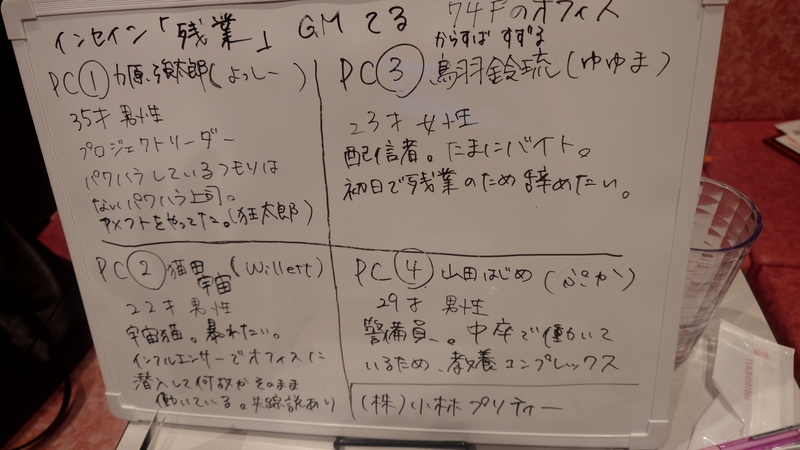 インセイン「残業」 GM てる 74Fのオフィス
PC① 力原強太郎(よっしー)
35才 男性
プロジェクトリーダー
パワハラしているつもりは
ないパワハラ上司。
アメフトをやってた。(狂太郎)
からすば すずる
PC③ 烏羽鈴琉(ゆゆま)
23才 女性
配信者。たまにバイト。
初日で残業のため辞めたい。
PC② 猫田宇宙 (Willett)
22才 男性
宇宙猫。暴れたい。
インフルエンサーでオフィスに
潜入して何故かそのまま
働いている。失踪説あり
PC④ 山田はじめ (ぷか)
29才 男性
警備員。中卒で働いて
いるため、教養コンプレックス
(株)小林プリティー